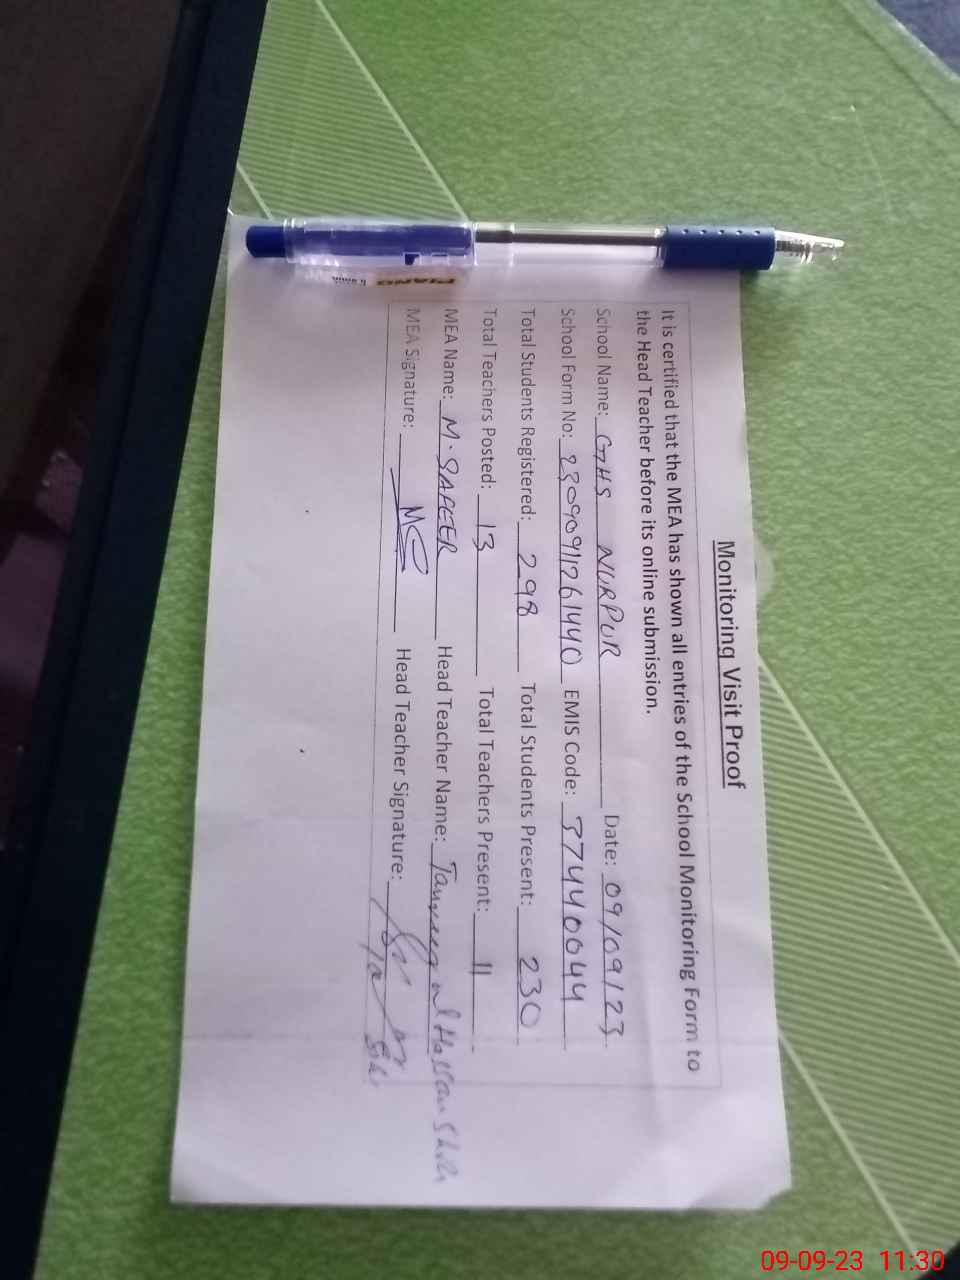 Monitoring Visit Proof
It is certified that the MEA has shown all entries of the School Monitoring Form to
the Head Teacher before its online submission.
School Name: GHS NURPUR Date: 09/09/23
School Form No: 23090911261440 EMIS Code: 37440044
Total Students Registered: 298 Total Students Present: 230
Total Teachers Posted: 13 Total Teachers Present: 11
MEA Name: M. SAFEER Head Teacher Name: ul Hassan
MEA Signature: MS Head Teacher Signature:
PIANO
09-09-23 11:30